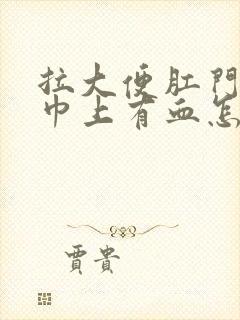 拉大便肛門
巾上有血怎
賈貴